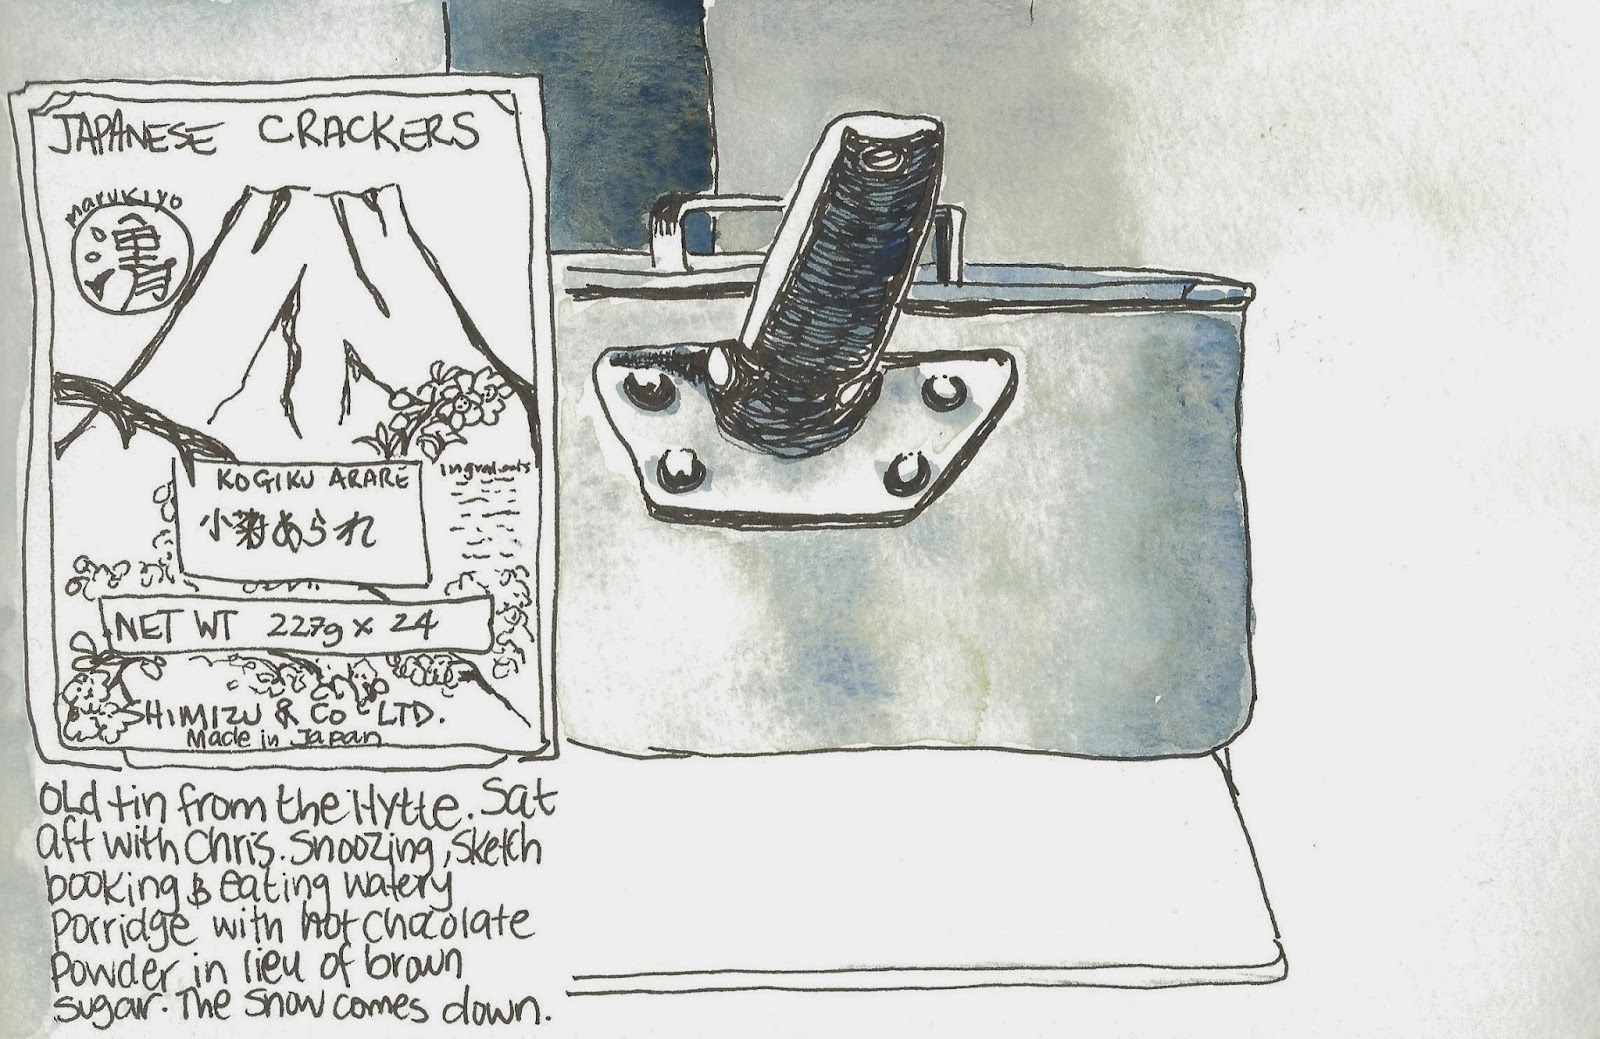 JAPANESE CRACKERS
marukiyo
KOGIKU ARARE
小菊あられ
ingredients
NET WT 227g x 24
SHIMIZU & Co LTD.
Made in Japan
Old tin from the Hytte. Sat
aft with Chris. Snoozing, sketch
booking & eating watery
porridge with hot chocolate
powder in lieu of brown
sugar. The snow comes down.